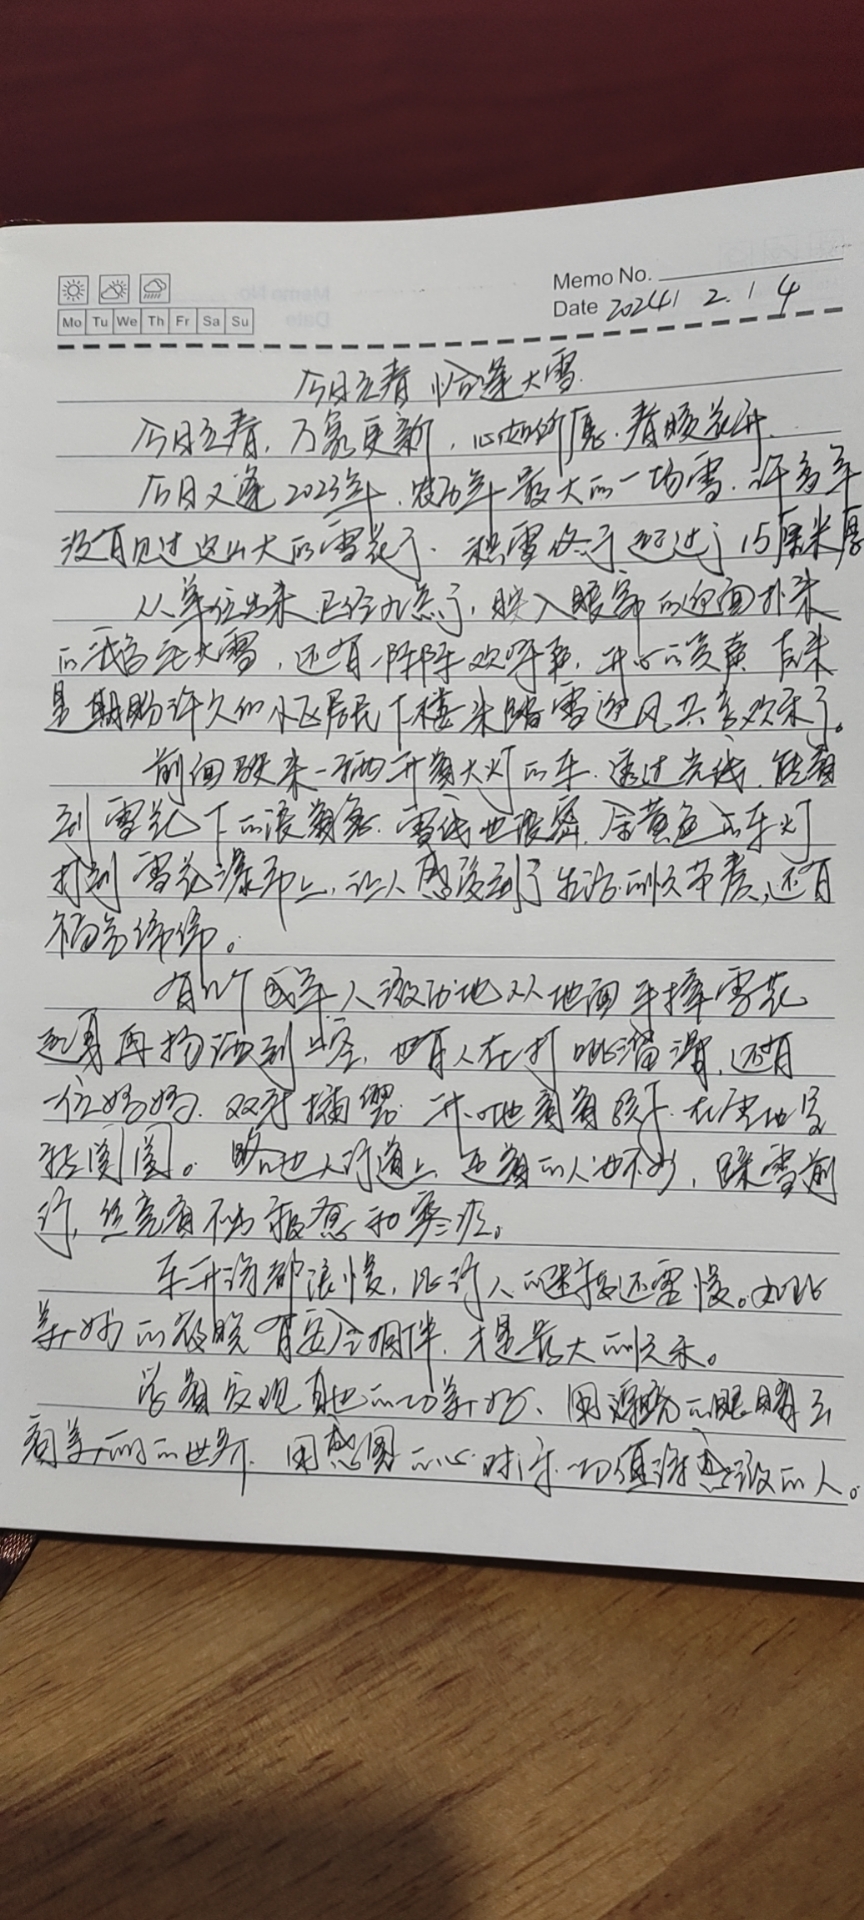 Memo No.
Date 2024/2/4
Mo Tu We Th Fr Sa Su
今日立春 恰逢大雪
今日立春,万象更新,心如所愿,春暖花开.
今日又逢2023年,农历年最大的一场雪.许多年
没有见过这么大的雪花了.积雪终于超过了15厘米厚
从单位出来已经九点了,映入眼帘的迎面扑来
的鹅毛大雪,还有一阵阵欢呼声,开心的笑声 原来
是期盼许久的小区居民下楼来踏雪迎风共享欢乐了。
前面驶来一辆开着大灯的车.透过光线,能看
到雪花下的很着急.雪线也很密,金黄色的车灯
打到雪花瀑布上,让人感受到了生活的快节奏,还有
有几个成年人激动地从地面手捧雪花
起身再抛洒到空,也有人在打呲溜滑,还有
一位妈妈.双手插 开心地看着孩子.在雪地里
转圈圈。路边人行道上 的人也不少,踩雪前
行,丝毫看不出疲惫和寒冷。
车开得都很慢,比行人的速度还要慢。如此
美妙的夜晚有安全相伴.才是最大的快乐。
学着发现身边的美好、用 的眼睛去
看美丽的世界.用感恩的心对待一切值得感激的人。